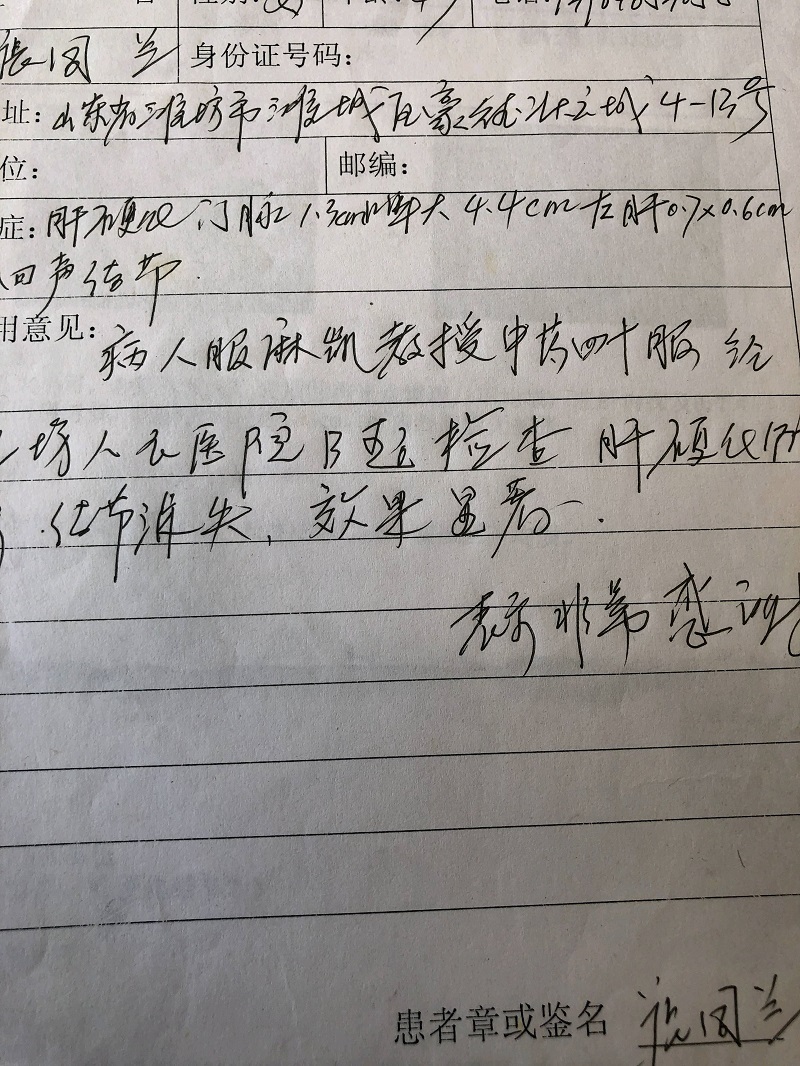 性别:女
张凤兰 身份证号码:
址: 山东省潍坊市潍城 4-13号
位: 邮编:
症: 肝硬化 门脉1.3cm 脾大 4.4cm 左肝0.7×0.6cm
回声结节.
用意见: 病人服麻凯教授中药四十服 经
坊人民医院B超检查 肝硬化
结节消失, 效果显著.
表示非常感谢
患者章或鉴名 张凤兰